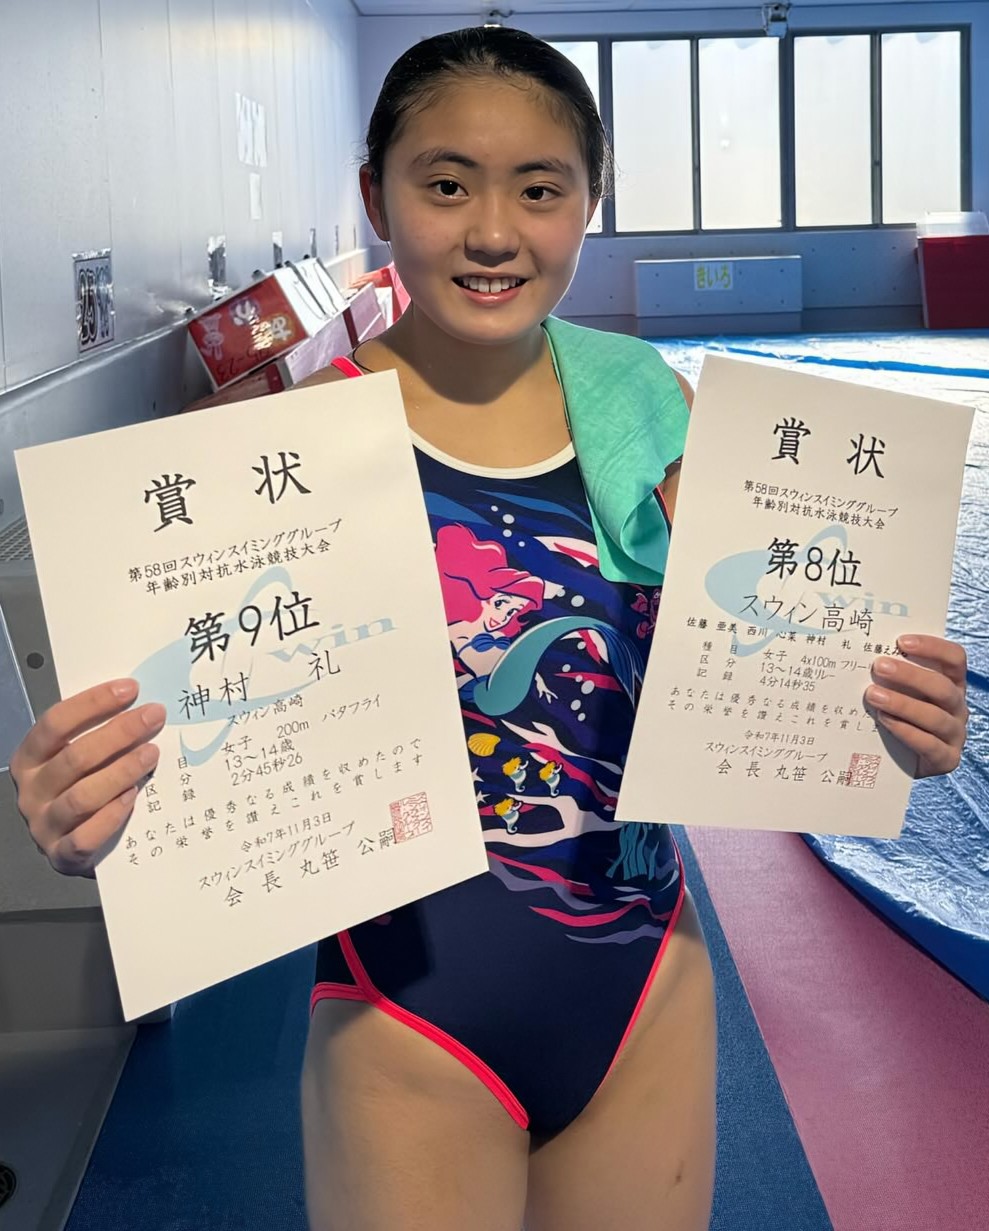 賞 状
第58回スウィンスイミンググループ
年齢別対抗水泳競技大会
第9位
神村 礼
スウィン高崎
目 女子 200m バタフライ
区 分 13〜14歳
記 録 2分45秒26
あなたは優秀なる成績を収めたので
その栄誉を讃えこれを賞します
令和7年11月3日
スウィンスイミンググループ
会長 丸笹 公嗣
win
賞 状
第58回スウィンスイミンググループ
年齢別対抗水泳競技大会
第8位
スウィン高崎
佐藤 亜美 西川 心菜 神村 礼 佐藤え
種 目 女子 4x100m フリー
区 分 13〜14歳リレー
記 録 4分14秒35
あなたは優秀なる成績を収めた
その栄誉を讃えこれを賞し
令和7年11月3日
スウィンスイミンググループ
会長 丸笹 公嗣
win
きいろ